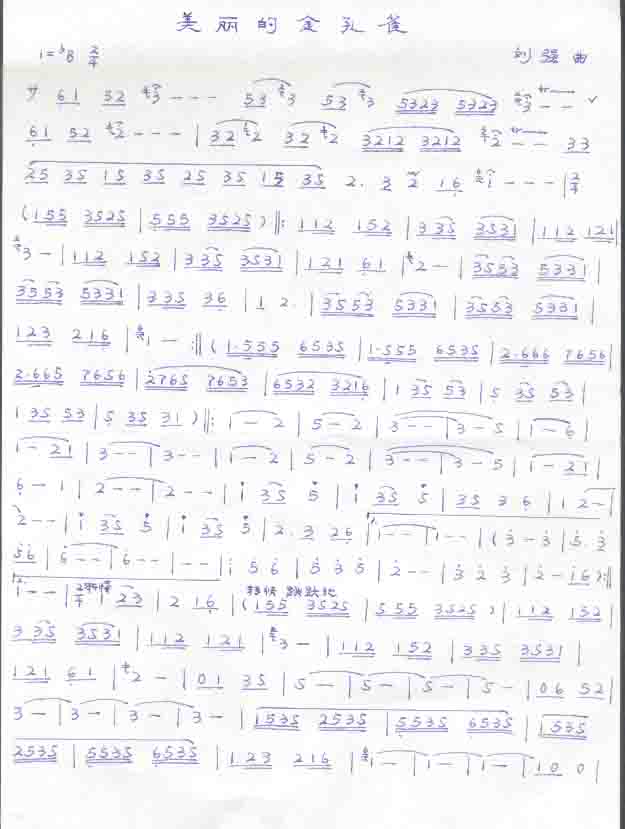 美丽的金孔雀
1=♭B 2/4 刘强曲
サ 61 32 3 - - - 53 3 53 3 5323 5323 3 - - ✓
61 52 2 - - - | 32 2 32 2 3212 3212 2 - - 33
25 35 15 35 25 35 15 35 2. 3 2 16 1 - - - | 2/4
(155 3525 | 555 3525) ‖: 112 152 | 335 3531 | 112 121 |
3 - | 112 152 | 335 3531 | 121 61 | 2 - | 3553 5331 |
3553 5331 | 335 36 | 1 2. | 3553 5331 | 3553 5331 |
123 216 | 1 - :‖ (1.555 6535 | 1.555 6535 | 2.666 7656 |
2.665 7656 | 2765 7653 | 6532 3216 | 1 35 53 | 5 35 53 |
1 35 53 | 5 35 31) ‖: 1 - 2 | 5 - 2 | 3 - - | 3 - 5 | 1 - 6 |
1 - 21 | 3 - - | 3 - - | 1 - 2 | 5 - 2 | 3 - - | 3 - 5 | 1 - 21 |
6 - 1 | 2 - - | 2 - - | i 35 5 | i 35 5 | 35 3 6 | 1 2 - |
2 - - | i 35 5 | i 35 5 | 2. 3 26 | 1. 1 - - | 1 - - | (3 - 3 | 5. 3
56 | 6 - - | 6 - - | - - | i 5 6 | 5 3 5 | 2 - - | 3 2 3 | 2 - 16) :‖
2. 1 - - | 2/4 转慢 23 | 2 16 | (转快 跳跃地 155 3525 | 555 3525) | 112 152 |
3 35 3531 | 112 121 | 3 - | 112 152 | 335 3531 |
121 61 | 2 - | 01 35 | 5 - | 5 - | 5 - | 5 - | 06 52 |
3 - | 3 - | 3 - | 3 - | 1535 2535 | 5535 6535 | 1535
2535 | 5535 6535 | 123 216 | 1 - | 1 - | 1 - | 10 0 |